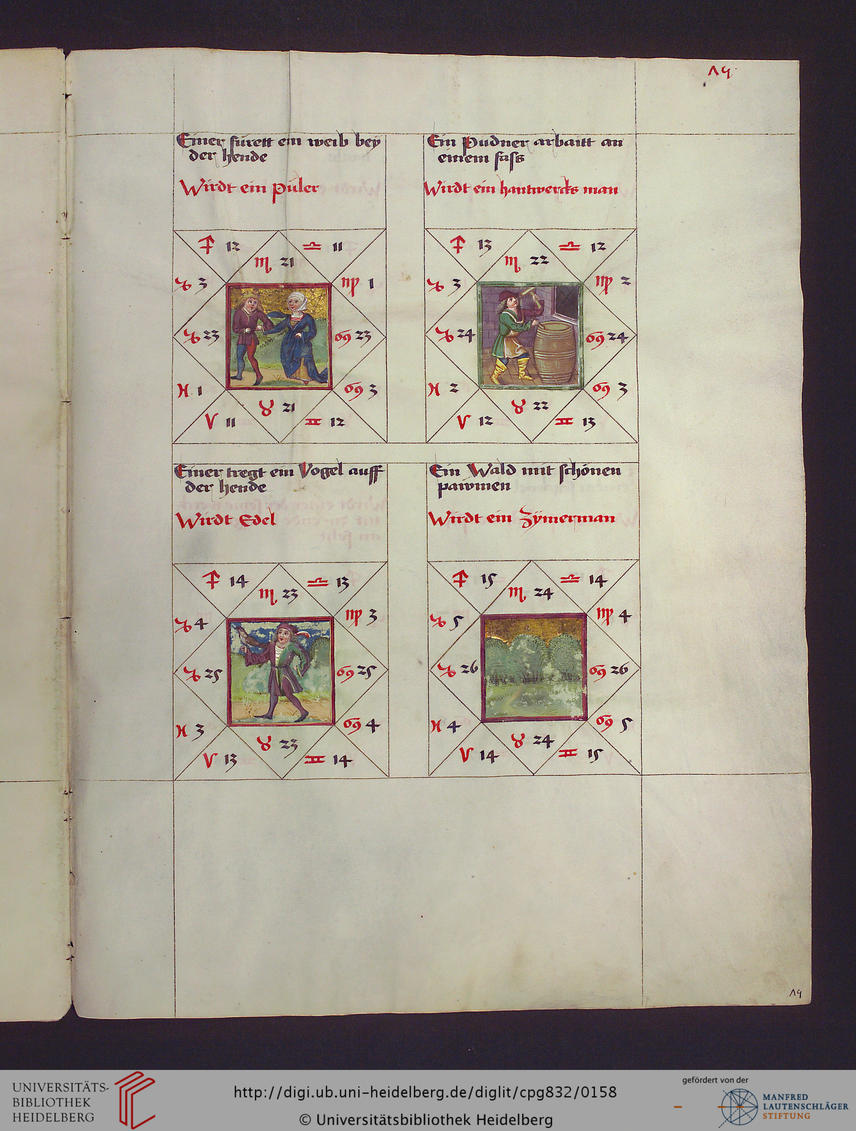 Einer fürett ein weib bey
der hende
Wirdt ein püler
♐ 12
♎ 11
♏ 21
♑ 3
♍ 1
♑ 23
♋ 23
♓ 1
♋ 3
♈ 11
♉ 21
♊ 12
Ein Pudner arbaitt an
einem fass
Wirdt ein hantwercks man
♐ 13
♎ 12
♏ 22
♑ 3
♍ 2
♑ 24
♋ 24
♓ 2
♋ 3
♈ 12
♉ 22
♊ 13
Einer tregt ein Vogel auff
der hende
Wirdt Edel
♐ 14
♎ 13
♏ 23
♑ 4
♍ 3
♑ 25
♋ 25
♓ 3
♋ 4
♈ 13
♉ 23
♊ 14
Ein Wald mit schönen
pawmen
Wirdt ein Zymerman
♐ 15
♎ 14
♏ 24
♑ 5
♍ 4
♑ 26
♋ 26
♓ 4
♋ 5
♈ 14
♉ 24
♊ 15
UNIVERSITÄTS-
BIBLIOTHEK
HEIDELBERG
http://digi.ub.uni-heidelberg.de/diglit/cpg832/0158
© Universitätsbibliothek Heidelberg
gefördert von der
MANFRED
LAUTENSCHLÄGER
STIFTUNG